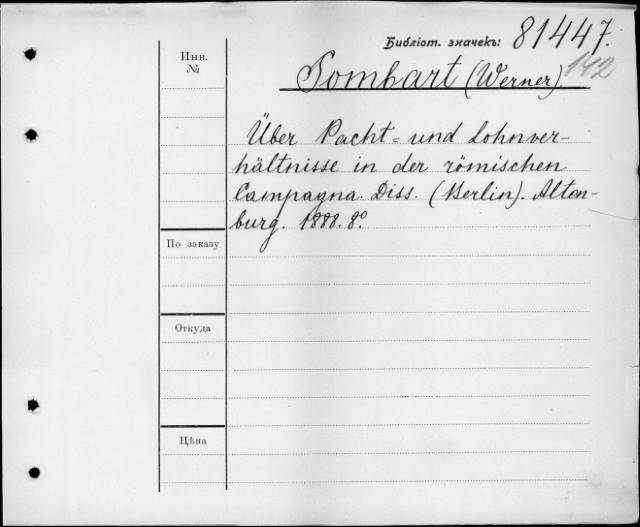 Библіот. значекъ: 81447.
142
Инв.
№
Sombart (Werner).
Über Pacht= und Lohnver-
hältnisse in der römischen
Campagna. Diss. (Berlin). Alten-
burg. 1888. 8º.
По заказу
Откуда
Цѣна